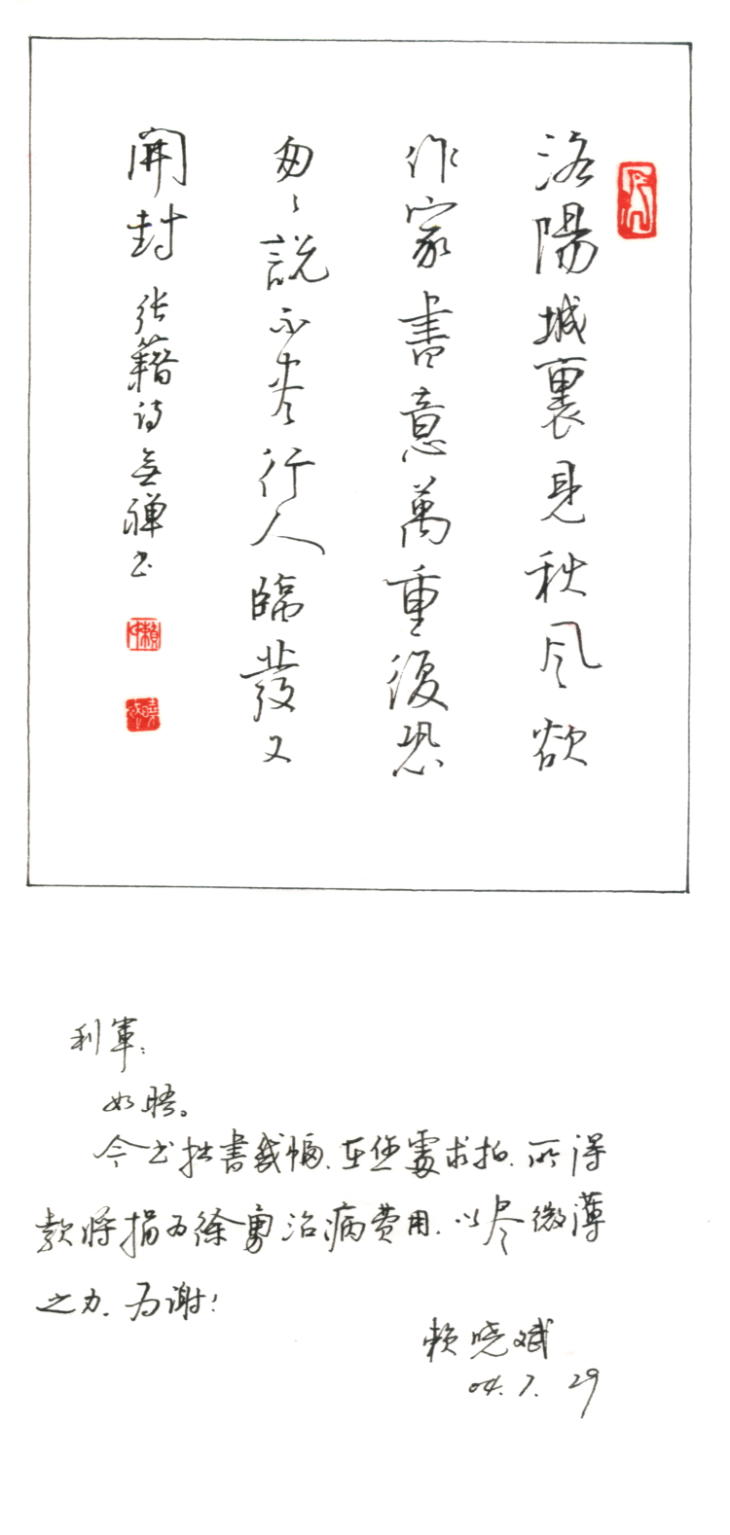 洛陽城裏見秋風欲
作家書意萬重復恐
匆匆說不盡行人臨發又
開封 张籍诗 無禅书
利軍：
如晤。
今书拙書幾幅，在您處求拍，所得
款将捐为徐勇治病费用，以尽微薄
之力，为谢！
赖晓斌
04.7.29